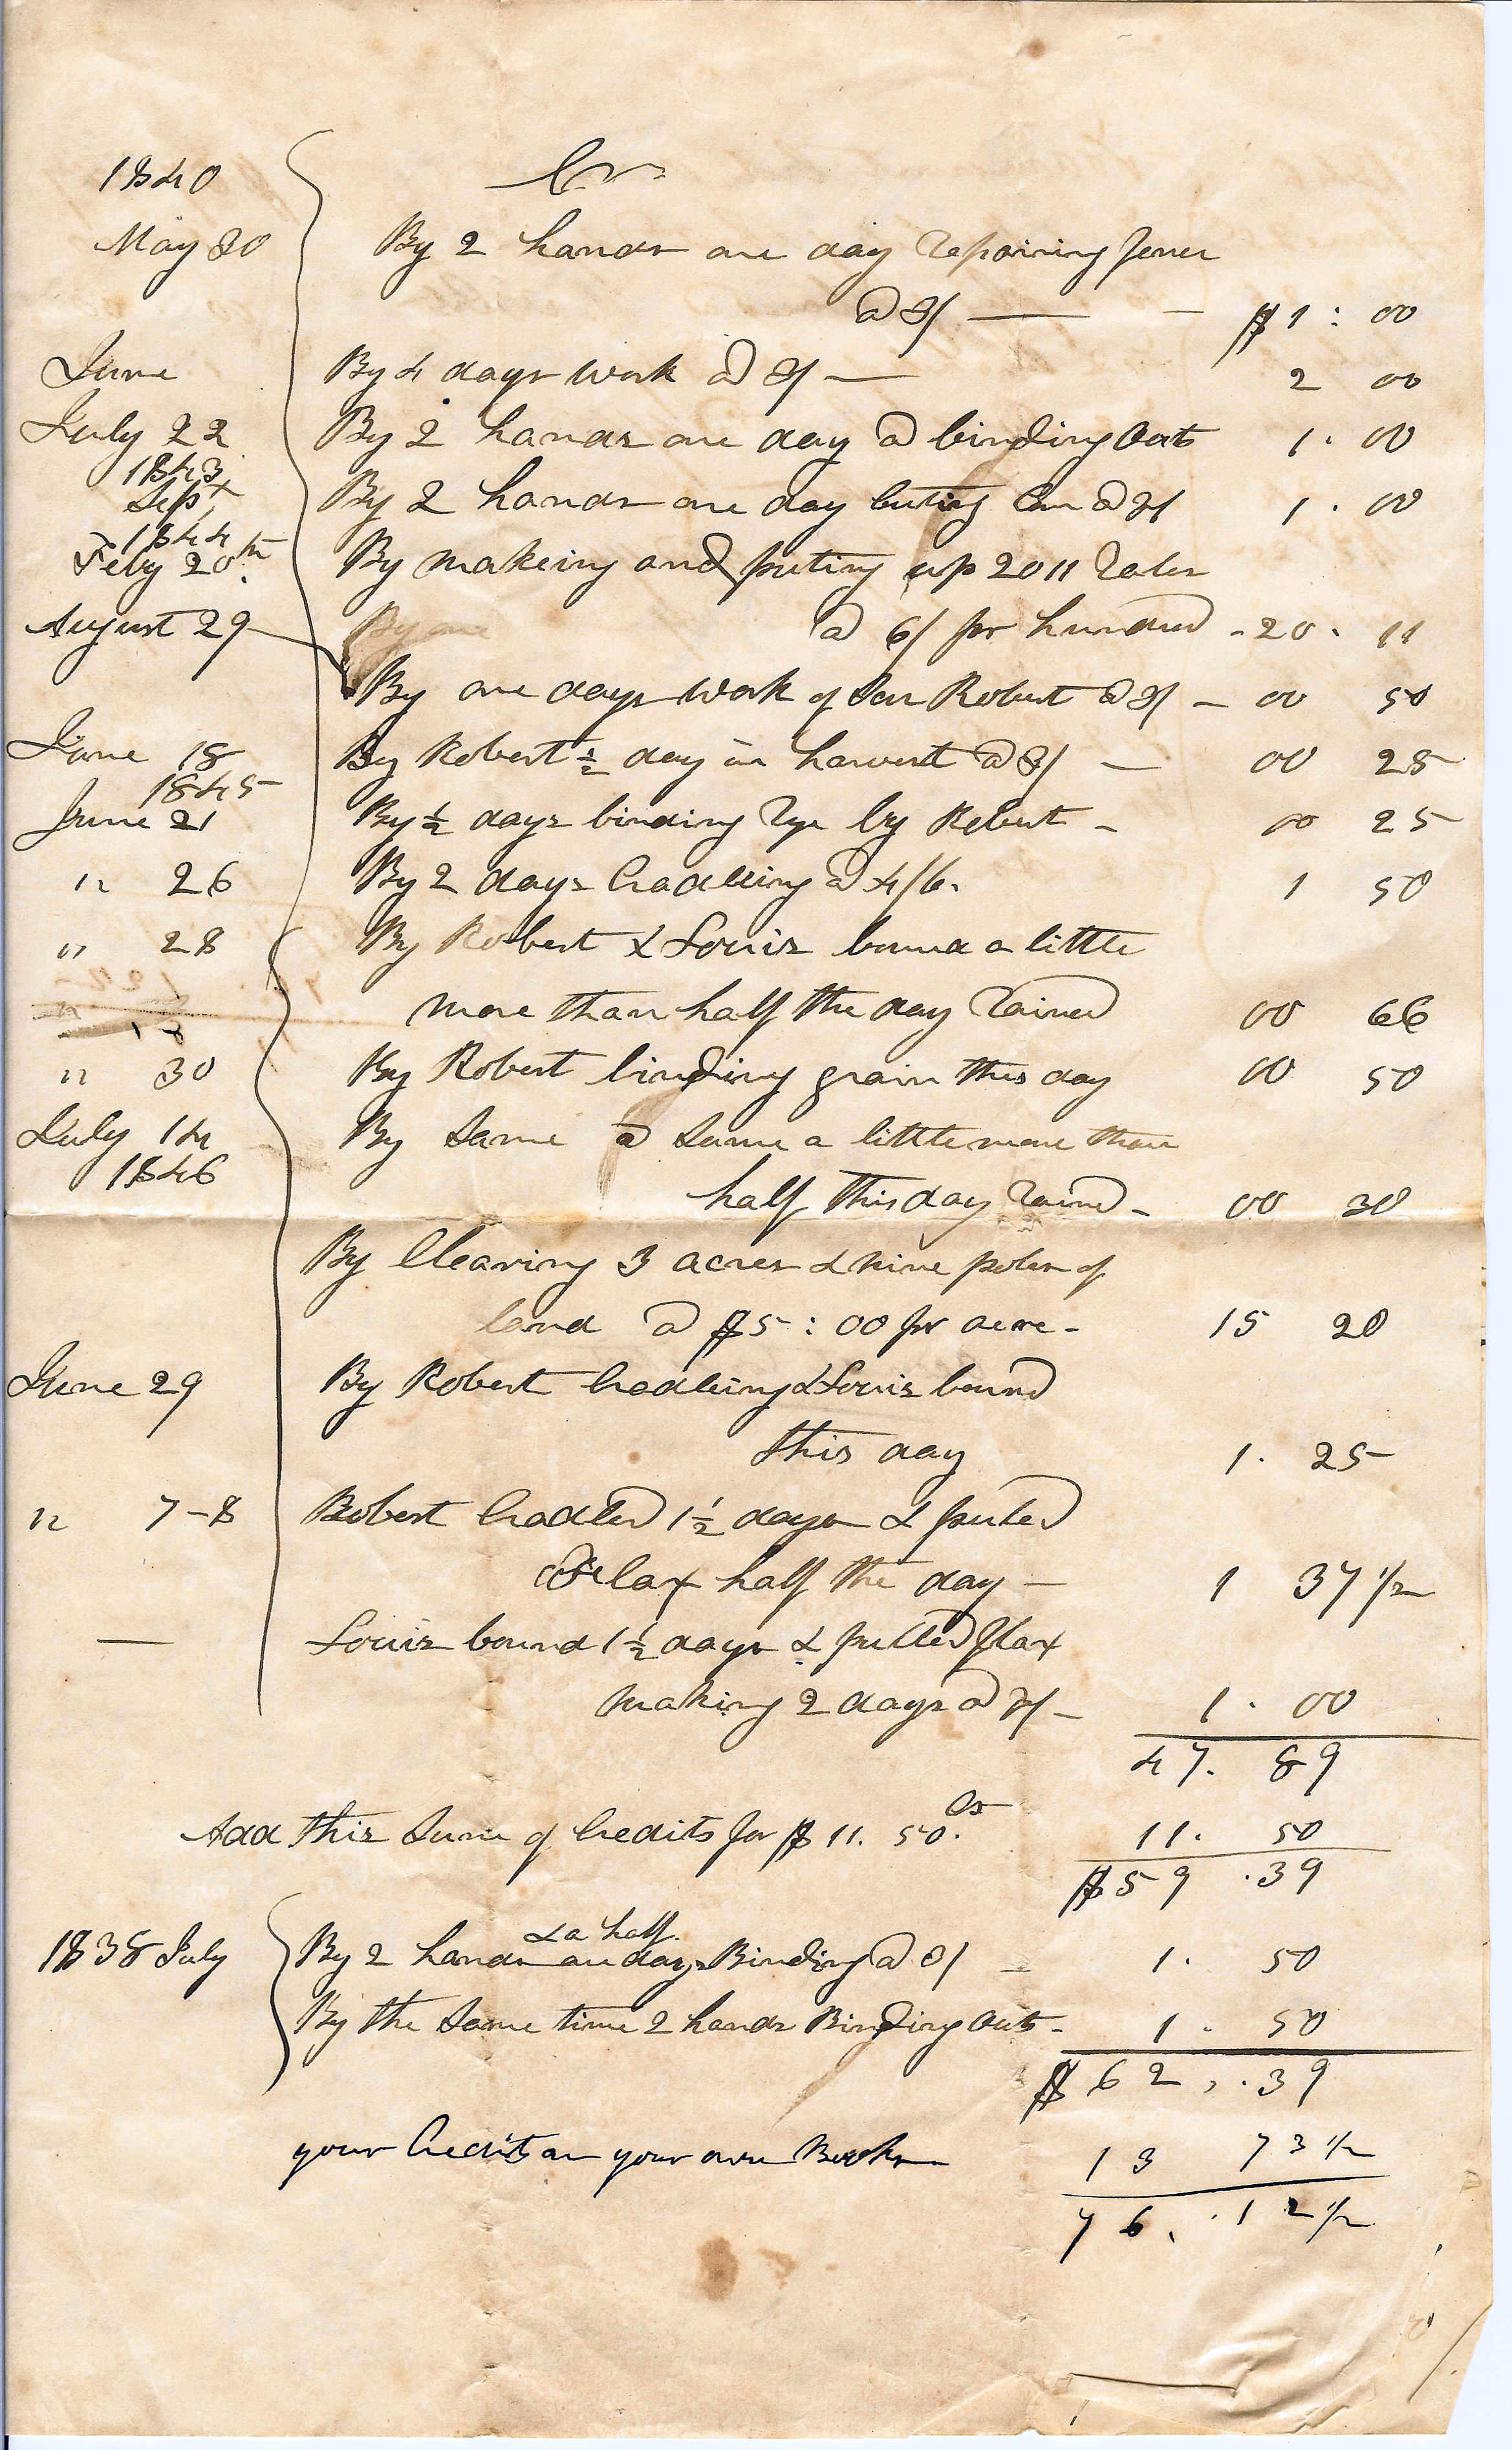 1840 Cr
May 20 By 2 hands one day repairing fence
@ 3/ — $1 : 00
June By 4 days work @ 3/ — 2 00
July 22 By 2 hands one day @ binding Oats 1 . 00
1843
Sept By 2 hands one day cuting Corn @ 3/ 1 . 00
1844
Feby 20th. By makeing and puting up 2011 Rales
@ 6/ pr hundred - 20 . 11
August 29 By one
By one days work of Son Robert @ 3/ - 00 50
June 18 By Robert ½ day in harvest @ 3/ — 00 25
1845
June 21 By ½ days binding Rye by Robert - 00 25
" 26 By 2 days Cradling @ 4/6. 1 50
" 28 By Robert & Louis bound a little
more than half the day rained 00 66
" 30 By Robert binding grain this day 00 50
July 14 By Same @ Same a little more than
1846
half this day rained - 00 30
By Clearing 3 acres & nine poles of
land @ $5 : 00 pr acre - 15 20
June 29 By Robert Cradling & Louis bound
this day 1 . 25
" 7-8 Robert Cradled 1½ days & puled
Flax half the day — 1 37½
— Louis bound 1½ days & pulled flax
making 2 days @ 3/ - 1 . 00
47 . 89
Add this Sum of Credits for $11. 50. Cs 11. 50
$59 .39
& a half
1838 July By 2 hands one days Binding @ 3/ - 1. 50
By the Same time 2 hands Binding Oats - 1 . 50
$62 . 39
your Credits on your own Books 13 73½
76. 12½